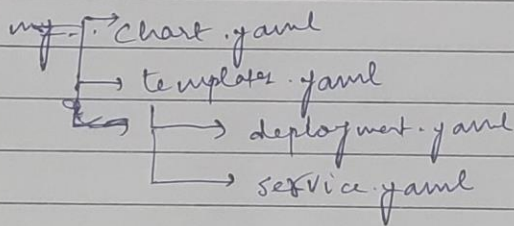 chart.yaml
templates.yaml
deployment.yaml
service.yaml